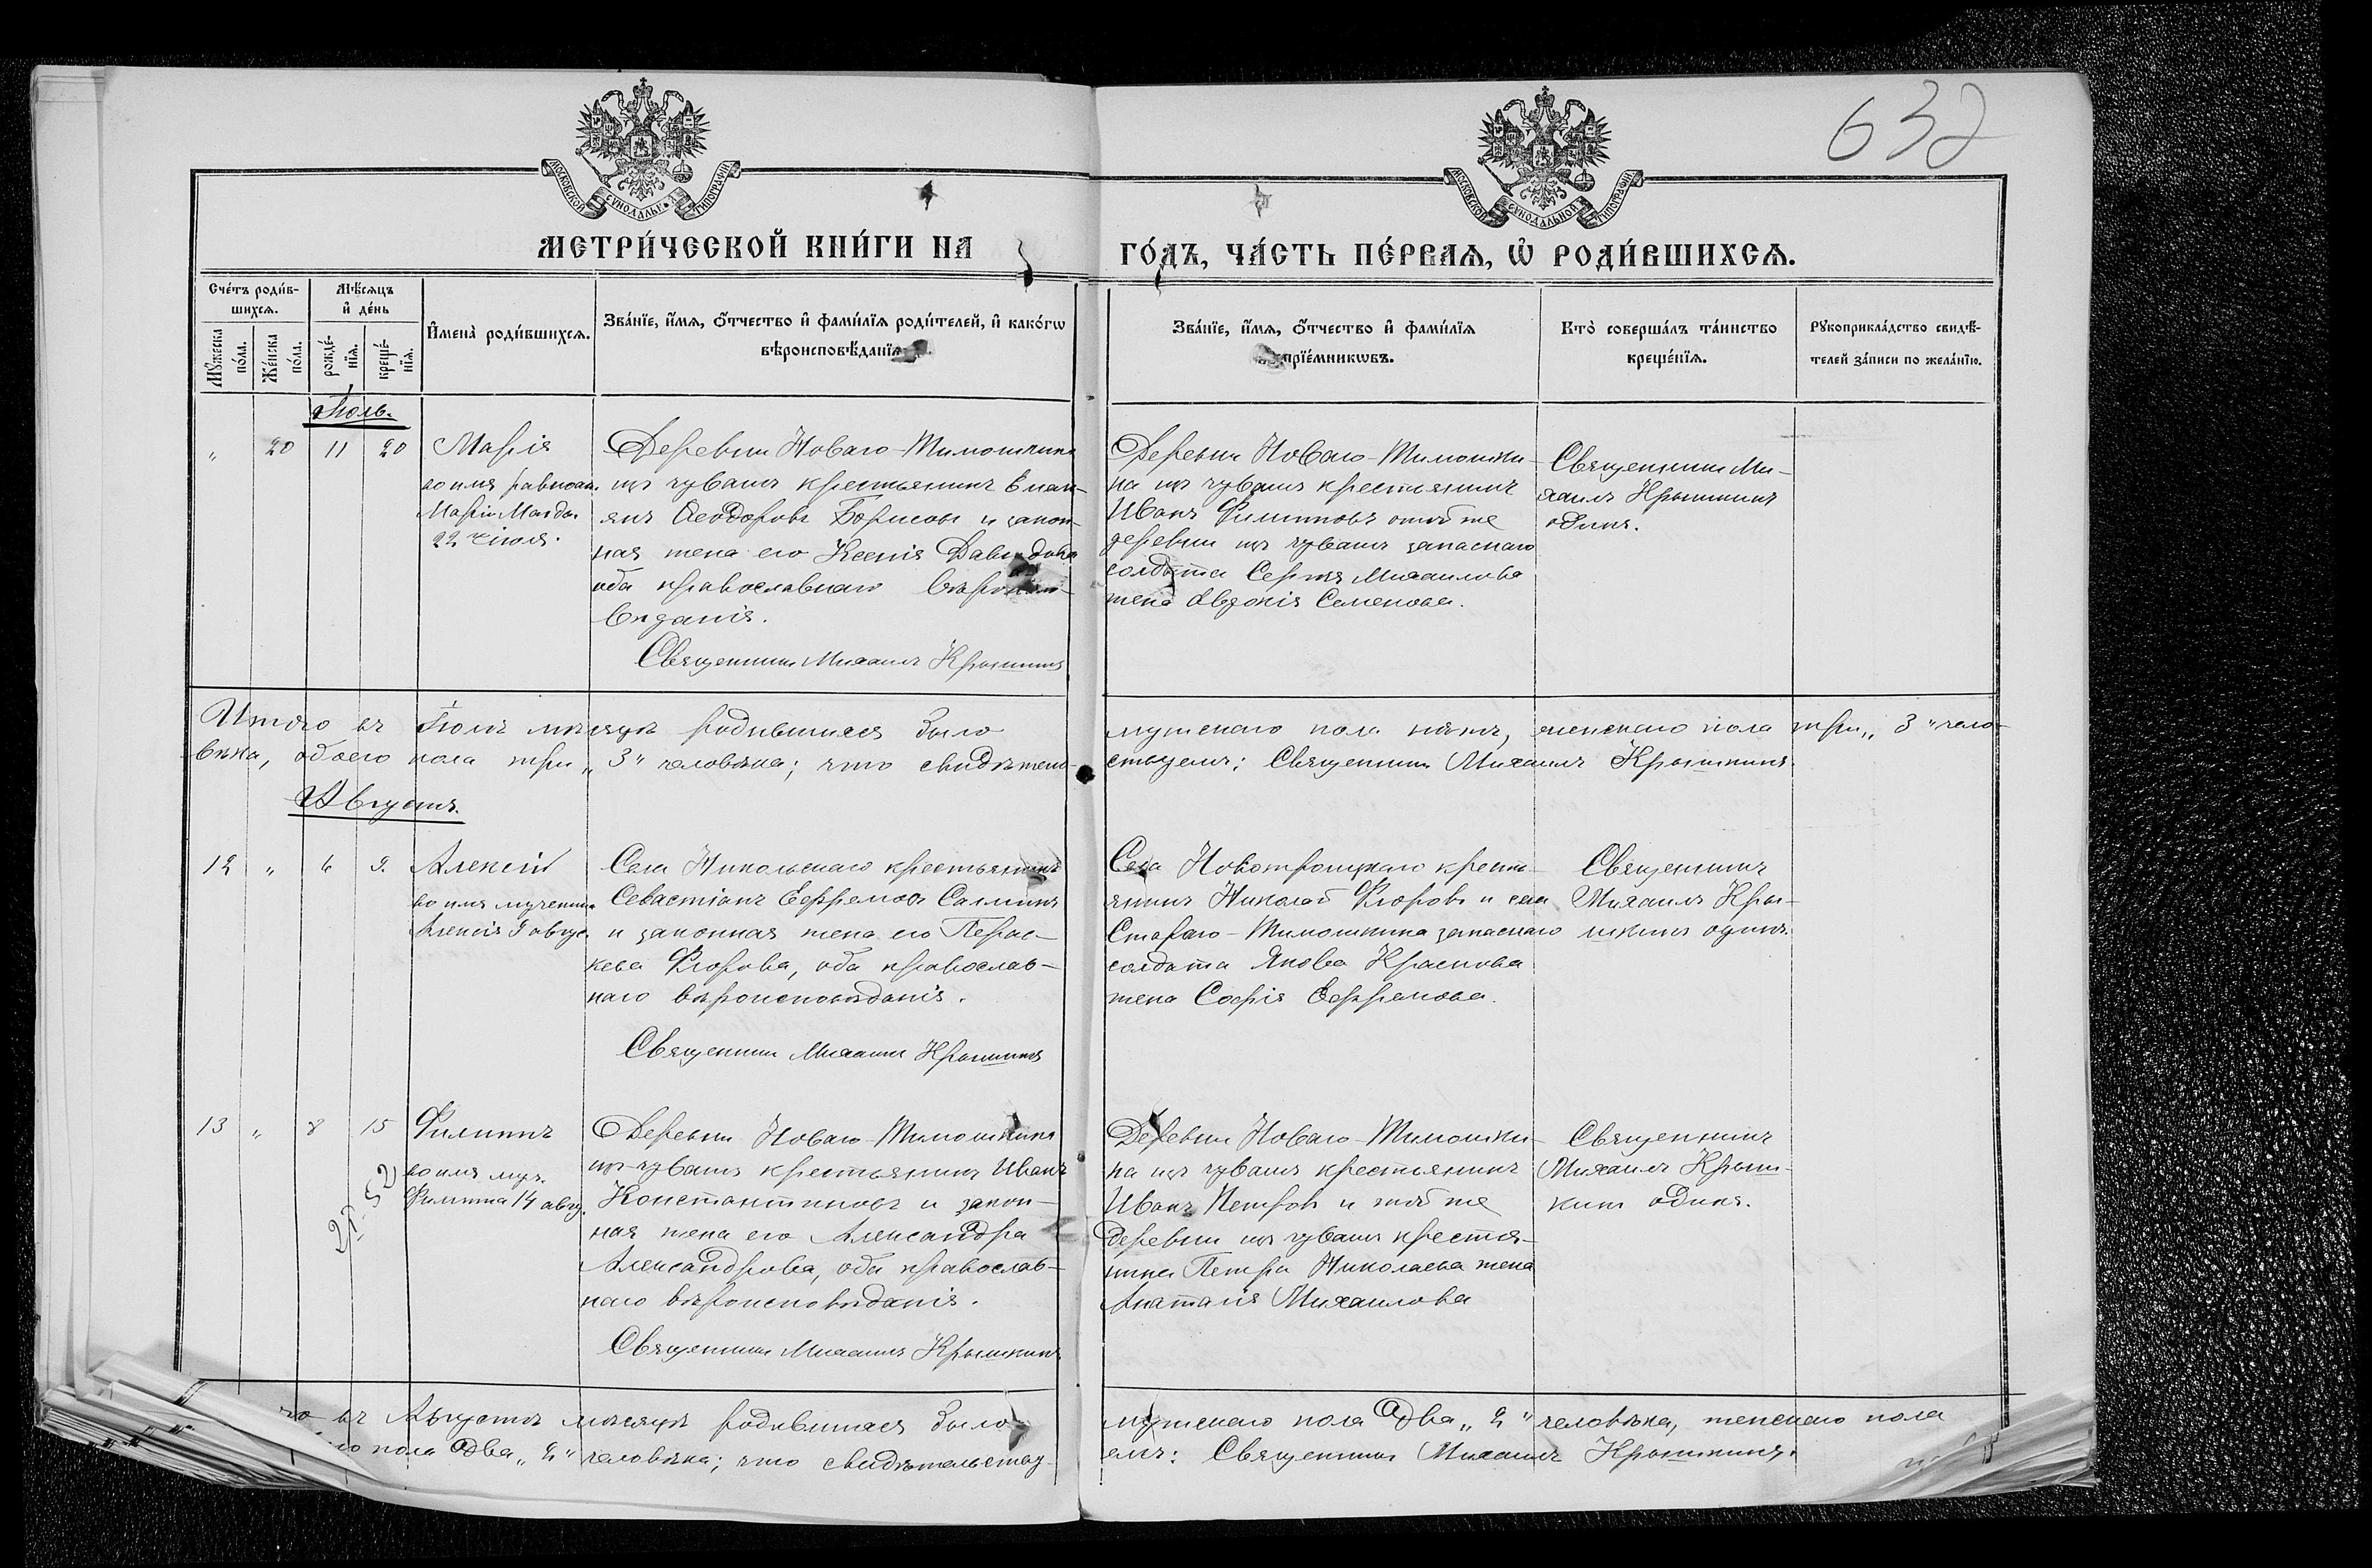 632
МОСКОВСКОЙ СѴНОДАЛЬНОЙ ТИПОГРАФІИ
МОСКОВСКОЙ СѴНОДАЛЬНОЙ ТИПОГРАФІИ
МЕТРИ́ЧЕСКОЙ КНИ́ГИ НА
ГО́ДЪ, ЧА́СТЬ ПЕ́РВАѦ, Ѽ РОДИ́ВШИХСѦ.
Сче́тъ роди́в-
шихсѧ.
Мѣ́сѧцъ
и҆ де́нь
Мꙋ́жеска
по́ла.
Же́нска
по́ла.
рожде́-
нїѧ.
креще́-
нїѧ.
И҆мена̀ роди́вшихсѧ.
Зва́нїе, и҆́мѧ, ѻ҆́тчество и҆ фами́лїѧ роди́телей, и҆ како́гѡ
вѣроисповѣ́данїѧ.
Зва́нїе, и҆́мѧ, ѻ҆́тчество и҆ фами́лїѧ
прїе́мникѡвъ.
Кто̀ соверша́лъ та́инство
креще́нїѧ.
Рꙋкоприкла́дство свидѣ́-
телей за́писи по жела́нїю.
Іюль.
„ 20 11 20
Марія
во имя равноап.
Маріи Магда.
22 іюля.
Деревни Новаго-Тимошкина
изъ чувашъ крестьянинъ
Ѳеодоровъ Борисовъ и закон-
ная жена его Ксенія Давыдова
оба православнаго вѣроиспо-
вѣданія.
Священникъ Михаилъ Крышкинъ
Деревни Новаго-Тимошки-
на изъ чувашъ крестьянинъ
Иванъ Филипповъ и той же
деревни изъ чувашъ запаснаго
солдата Сергѣя Михаилова
жена Евдокія Семенова.
Священникъ Ми-
хаилъ Крышкинъ
одинъ.
Итого въ Іюлѣ мѣсяцѣ родившихся было мужескаго пола нѣтъ, женскаго пола три „3" чело-
вѣка, обоего пола три „3" человѣка; что свидѣтель-ствуемъ: Священникъ Михаилъ Крышкинъ.
Августъ.
12 „ 6 9.
Алексій
во имя мученика
Алексія 9 авгус.
Села Никольскаго крестьянинъ
Севастіанъ Ефремовъ Салминъ
и законная жена его Парас-
кева Флорова, оба православ-
наго вѣроисповѣданія.
Священникъ Михаилъ Крышкинъ
Села Новотроицкаго кресть-
янинъ Николай Флоровъ и села
Стараго-Тимошкина запаснаго
солдата Якова Краснова
жена Софія Ефремова.
Священникъ
Михаилъ Кры-
шкинъ одинъ.
13 „ 8 15
Филиппъ
во имя муч.
Филиппа 14 авгу.
Деревни Новаго-Тимошкина
изъ чувашъ крестьянинъ Иванъ
Константиновъ и закон-
ная жена его Александра
Александрова, оба православ-
наго вѣроисповѣданія.
Священникъ Михаилъ Крышкинъ.
Деревни Новаго-Тимошки-
на изъ чувашъ крестьянинъ
Иванъ Петровъ и той же
деревни изъ чувашъ крестья-
нина Петра Николаева жена
Михаилова
Священникъ
Михаилъ Крыш-
кинъ одинъ.
го въ Августѣ мѣсяцѣ родившихся было мужескаго пола два „2" человѣка, женскаго пола
го пола два „2" человѣка; что свидѣтельству-емъ: Священникъ Михаилъ Крышкинъ.